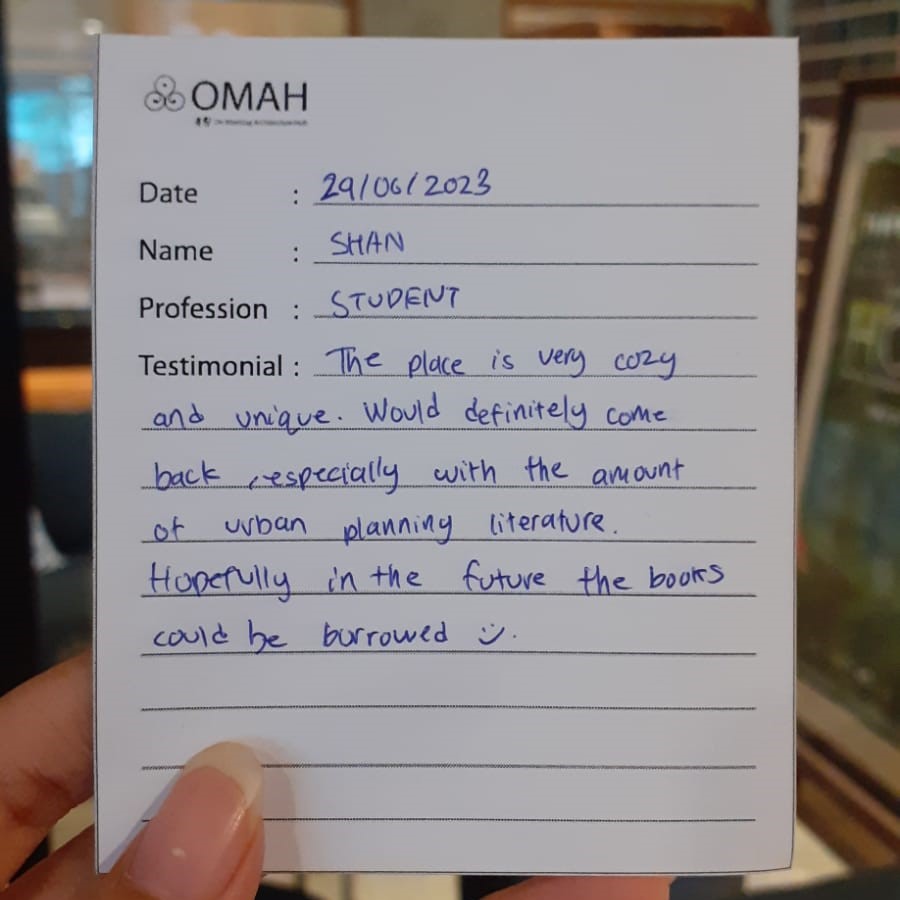 OMAH
Date : 29/06/2023
Name : SHAN
Profession : STUDENT
Testimonial : The place is very cozy
and unique. Would definitely come
back, especially with the amount
of urban planning literature.
Hopefully in the future the books
could be burrowed :).